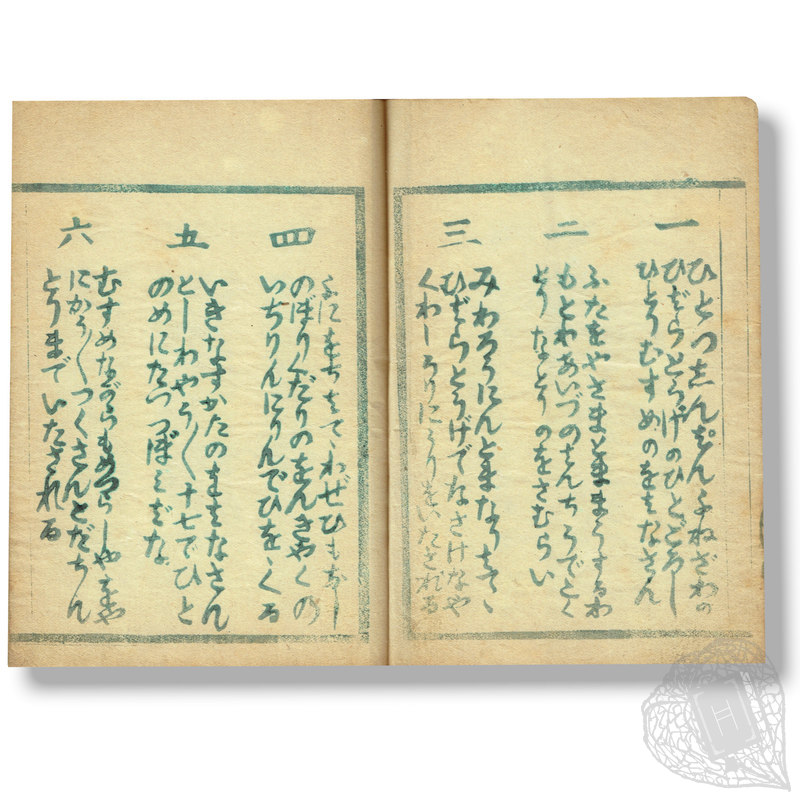 一
ひとつしんぱんよねざわの
ひばらとうげのひとごろし
ひとりむすめのをはなさん
二
ふたをやさまともまうするわ
もとわあいづのさんちうでとく
とうなどりのをさむらい
三
みわろうにんとはなりはてゝ
ひばらとうげでなさけなや
くわしうりに
をちはてゝわぜひもなし
四
のぼりくだりのをんきやくの
いちりんにりんでひをくる
五
いきなすかたのをはなさん
としわやう〳〵十七でひと
のめにたつつぼみばな
六
むすめながらもめつらしやをや
にかう〳〵つくさんとだちん
とりまでいたされる